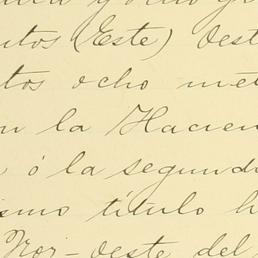 ntos (Este) Oest
tos ocho met
n la Hacien
ó la segunda
ismo título h
Nor-oeste del